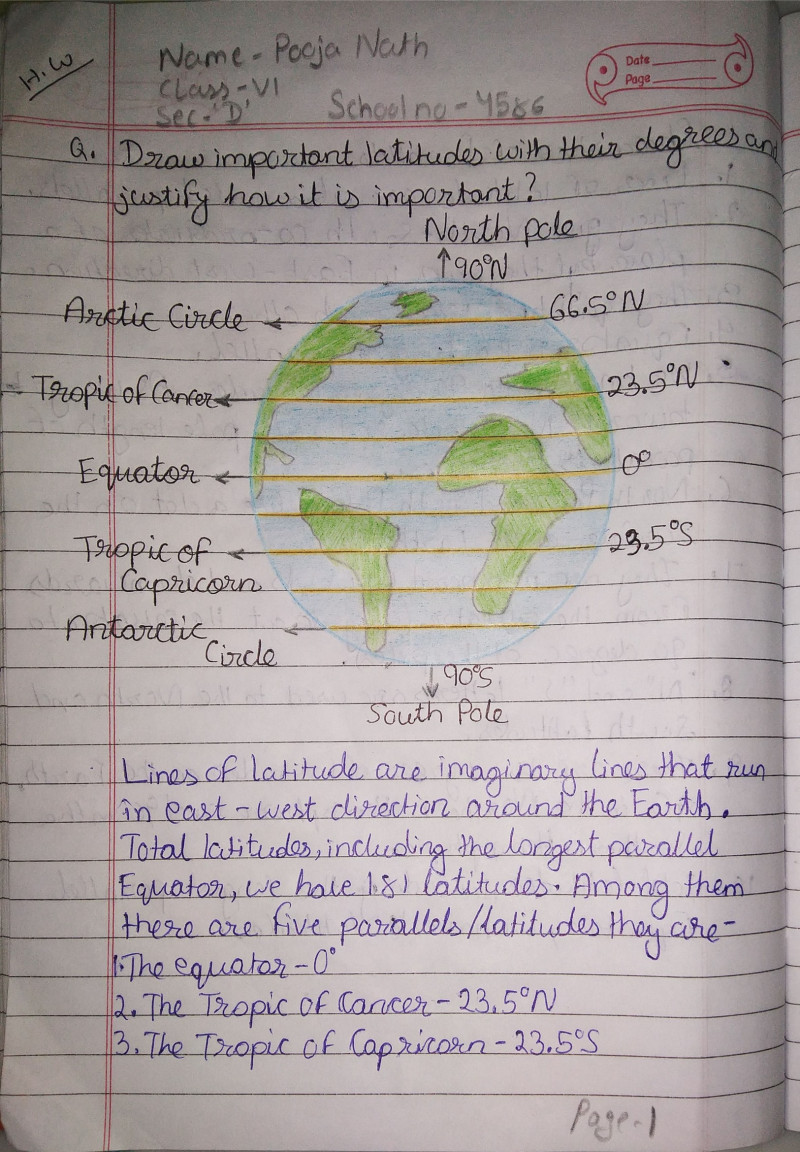 H.W
Name - Pooja Nath
Class - VI
Sec - 'D'
School no - 4586
Date
Page
Q. Draw important latitudes with their degrees and
justify how it is important?
North pole
↑90°N
Arctic Circle
66.5°N
Tropic of Cancer
23.5°N
Equator
0°
Tropic of
Capricorn
23.5°S
Antarctic
Circle
↓90°S
South Pole
Lines of latitude are imaginary lines that run
in east-west direction around the Earth.
Total latitudes, including the longest parallel
Equator, we have 181 latitudes. Among them
there are five parallels/latitudes they are-
1. The equator - 0°
2. The Tropic of Cancer - 23.5°N
3. The Tropic of Capricorn - 23.5°S
Page-1